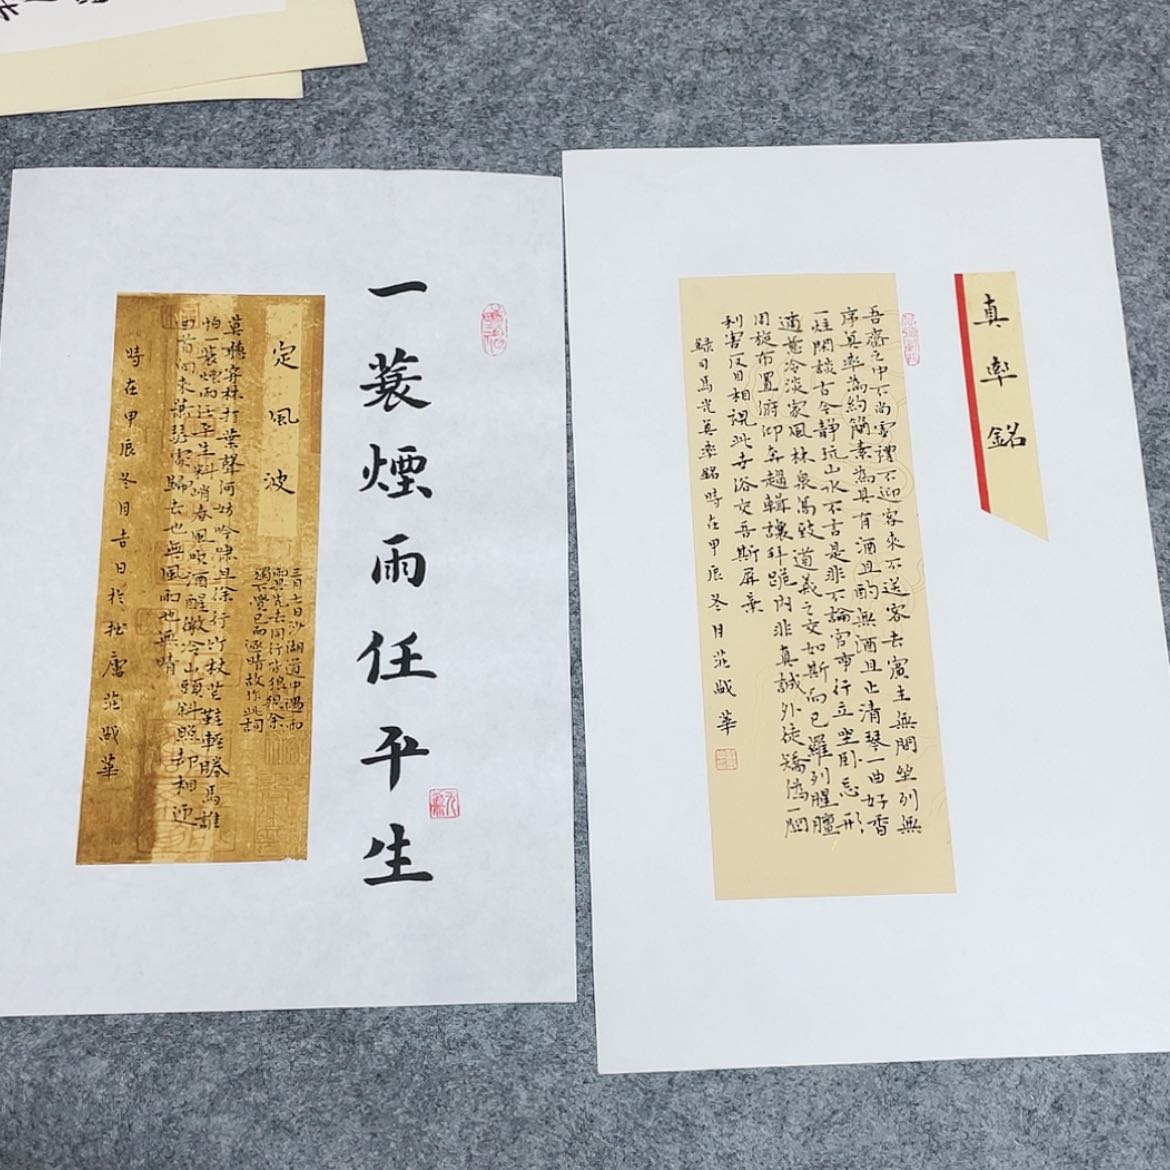 一蓑煙雨任平生
定風波
三月七日沙湖道中遇雨
雨具先去同行皆狼狽余
獨不覺已而遂晴故作此詞
莫聽穿林打葉聲何妨吟嘯且徐行竹杖芒鞋輕勝馬誰
怕一蓑煙雨任平生料峭春風吹酒醒微冷山頭斜照却相迎
回首向來蕭瑟處歸去也無風雨也無晴
時在甲辰冬月吉日於拙廬范華
真率銘
吾齋之中不尚虛禮不迎客來不送客去賓主無間坐列無
序真率為約簡素為具有酒且酌無酒且止清琴一曲好香
一炷閑談古今靜玩山水不言是非不論官市行立坐卧忘形
適意冷淡家風林泉高致道義之交如斯而已羅列腥膻
周旋布置俯仰奔趨輯讓拜跪內非真誠外徒矯偽一
利害反目相視此世俗交吾斯屏棄
錄司馬光真率銘時在甲辰冬月范華